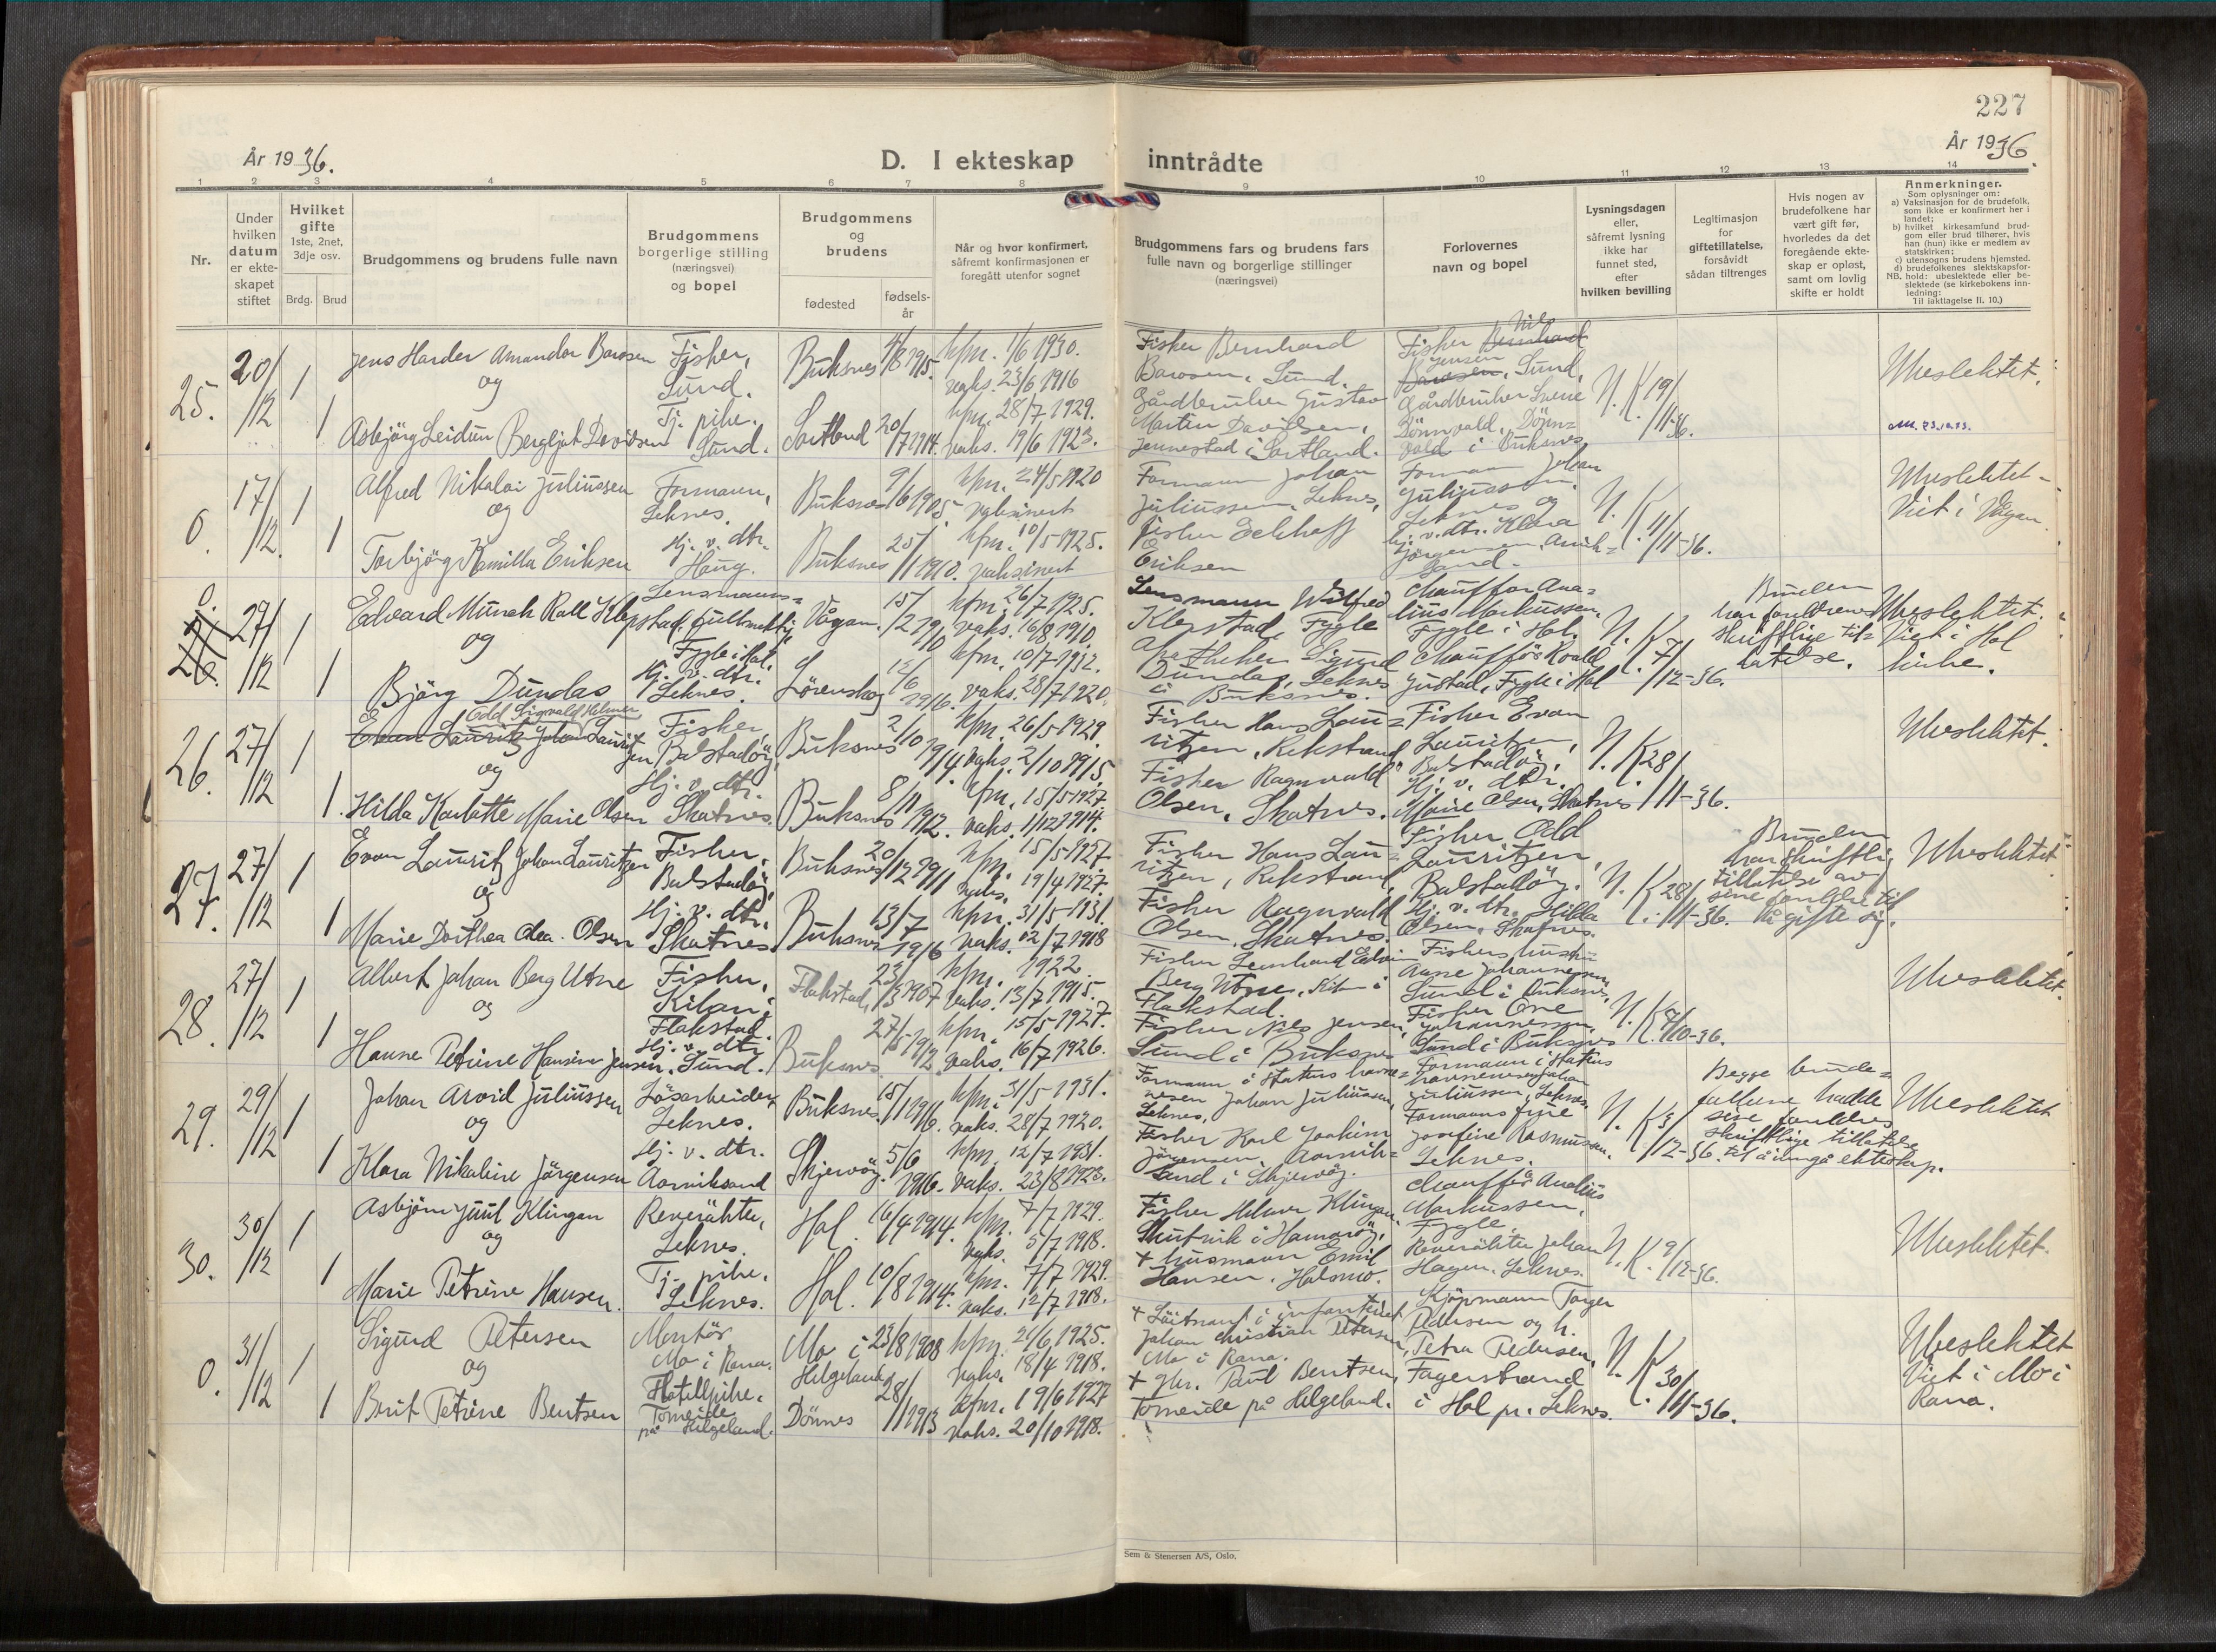 227
År 1936.
D. I ekteskap inntrådte
År 1936.
1 2 3 4 5 6 7 8 9 10 11 12 13 14
Nr.
Under hvilken datum er ekteskapet stiftet
Hvilket gifte 1ste, 2net, 3dje osv.
Brdg. Brud
Brudgommens og brudens fulle navn
Brudgommens borgerlige stilling (næringsvei) og bopel
Brudgommens og brudens
fødested
fødsels-år
Når og hvor konfirmert, såfremt konfirmasjonen er foregått utenfor sognet
Brudgommens fars og brudens fars fulle navn og borgerlige stillinger (næringsvei)
Forlovernes navn og bopel
Lysningsdagen eller, såfremt lysning ikke har funnet sted, efter hvilken bevilling
Legitimasjon for giftetillatelse, forsåvidt sådan tiltrenges
Hvis nogen av brudefolkene har vært gift før, hvorledes da det foregående ekteskap er opløst, samt om lovlig skifte er holdt
Anmerkninger.
Som oplysninger om:
a) Vaksinasjon for de brudefolk, som ikke er konfirmert her i landet;
b) hvilket kirkesamfund brudgom eller brud tilhører, hvis han (hun) ikke er medlem av statskirken;
c) utensogns brudens hjemsted.
d) brudefolkenes slektskapsforhold: ubeslektede eller beslektede (se kirkebokens innledning:
NB. Til iakttagelse II. 10.)
25. 20/12 1
Jens Harder Amandor Barosen
Fisker, Sund.
Buksnes 4/8 1915.
kfm. 1/6 1930. vaks. 23/6 1916
Fisker Bernhard Barosen, Sund.
Fisker Nils Jensen, Sund,
N. K. 19/11-36.
Ubeslektet.
og
1
Tj. pike. Sund.
Sortland 20/7 1914.
kfm. 28/7 1929. vaks. 19/6 1923.
Gårdbruker Gustav Martin Davidsen, Jennestad i Sortland.
Gårdbruker Dönnvold, Dönnvold i Buksnes.
0. 17/12. 1
Alfred Nikolai Juliussen
Formann, Leknes.
Buksnes 9/6 1905
kfm. 24/5 1920 vaksinert
Formann Johan Juliussen, Leknes,
Forman Johan Juliussen, Leknes og
N. K. 11/11-36.
Ubeslektet. Viet i Vågan.
og
1
Torbjörg Kamilla Eriksen
Hj. v. dtr. Haug.
Buksnes 25/1 1910.
kfm. 10/5 1925. vaksinert
Fisker Eriksen
hj. v. dtr. Klara Jörgensen
0. 27/12 1
Edvard Munch Rall Klepstad
Lensmannsfullmektig Fygle i Hol.
Vågan. 15/2 1910
kfm. 26/7 1925. vaks. 16/8 1910.
Lensmann Wilfred Klepstad, Fygle
Chauffør Markussen, Fygle i Hol.
N. K. 7/12-36.
Bruden har foreldrenes skriftlige tillatelse.
Ubeslektet. Viet i Hol kirke.
og
1
Björg Dundas
Hj. v. dtr. Leknes.
Lörenskog 1916.
kfm. 10/7 1932. vaks. 28/7 1920
Apotheker Sigurd Dundas, Leknes i Buksnes.
Chauffør Roald Justad, Fygle i Hol
26. 27/12 1
Odd Sigvald Helmer Lauritzen
Fisker, Balstadöy.
Buksnes 2/10 1914.
kfm. 26/5 1929. vaks. 2/10 1915.
Fisker Hans Lauritzen, Rekstrand
Fisker Evan Lauritzen, Balstadöy.
N. K. 28/11-36.
Ubeslektet.
og
1.
Hilda Karlotte Marie Olsen
Hj. v. dtr. Skatnes.
Buksnes 8/11 1912.
kfm. 15/5 1927 vaks. 1/12 1914.
Fisker Ragnvald Olsen, Skatnes.
Hj. v. dtr. Marie Olsen, Skatnes
27. 27/12 1
Evan Laurits Johan Lauritzen
Fisker, Balstadöy.
Buksnes 20/12 1911
kfm. 15/5 1927. vaks. 19/4 1927.
Fisker Hans Lauritzen, Rekstrand
Fisher Odd Lauritzen, Balstadöy.
N. K. 28/11-36.
Bruden har skriftlig tillatelse av sine foreldre til å gifte sig.
Ubeslektet
og
1
Marie Dorthea Olea Olsen
Hj. v. dtr. Skatnes.
Buksnes 13/7 1916
kfm. 31/5 1931. vaks. 12/7 1918
Fisker Ragnvald Olsen, Skatnes.
Hj. v. dtr. Hilda Olsen, Skatnes.
28. 27/12 1
Albert Johan Berg Utne
Fisker, Kilan i Flakstad.
Flakstad, 23/3 1907
kfm. 1922. vaks. 13/7 1915.
Fisker Leonhard Edvin Berg Utne, i Flakstad.
Fiskers hustru Anne Johannessen, Sund i Buksnes,
Ubeslektet.
og
1
Hanne Petrine Hansine Jensen.
Hj. v. dtr. Sund.
Buksnes 1912
kfm. 15/5 1927. vaks. 16/7 1926.
Fisker Nils Jensen, Sund i Buksnes
Fisker Ove Johannessen, Sund i Buksnes
29. 29/12 1
Johan Arvid Juliussen
Lösarbeider Leknes.
Buksnes 15/1 1916.
kfm. 31/5 1931. vaks. 28/7 1920.
Formann i Statens havnevesen Johan Juliussen, Leknes,
Formann i Statens havnevesen Johan Juliussen, Leknes.
N. K. 3/12-36.
Begge brudefolkene hadde sine foreldres skriftlige tillatelse til å inngå ekteskap.
Ubeslektet
og
1
Klara Nikoline Jörgensen
Hj. v. dtr. Aarniksand
Skjervöy. 5/6 1916.
kfm. 12/7 1931. vaks. 23/8 1923.
Fisker Karl Joakim Jörgensen, Aarniksand i Skjervöy.
Formanns frue Josefine Rasmussen, Leknes.
30. 30/12 1
Asbjörn Juul Klingan
Reverökter, Leknes.
Hol. 16/4 1914.
kfm. 7/7 1929. vaks. 5/7 1918.
Fisker Hilmar Klingan, Skutvik i Hamaröy.
Chauffør Markussen, Fygle
N. K. 9/12-36.
Ubeslektet.
og
1
Marie Petrine Hansen.
Tj. pike. Leknes.
Hol. 10/8 1914.
kfm. 7/7 1929. vaks. 12/7 1918.
+ husmann Emil Hansen, Holsmo.
Johan Hagen, Leknes.
0. 31/12 1
Sigurd Petersen
Montör Mo i Rana.
Mo i Helgeland 23/8 1908
kfm. 21/6 1925. vaks. 18/4 1918.
+ Löitnant i infanteriet Johan Christian Petersen, Mo i Rana.
Kjöpmann Torger Pedersen og h. Petra Pedersen, Fagerstrand i Hol pr. Leknes.
N. K. 30/11-36.
Ubeslektet Viet i Mo i Rana.
og
1
Brit Petrine Bentsen
Hotellpike. Torneide på Helgeland.
Dönnes 28/1 1913
kfm. 19/6 1927 vaks. 20/10 1918.
+ gbr. Paul Bentsen, Torneide på Helgeland.
Sem & Stenersen A/S, Oslo.